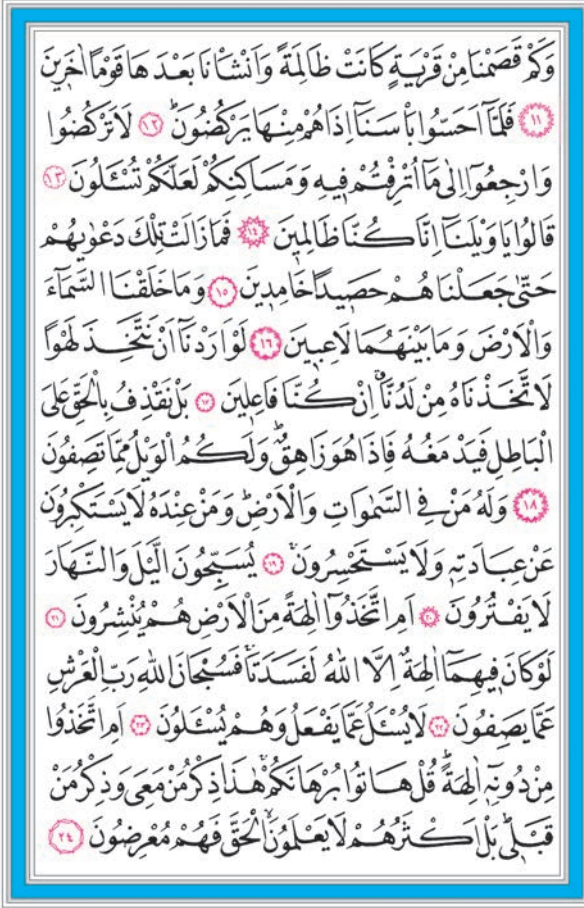 وَكَمْ قَصَمْنَا مِنْ قَرْيَةٍ كَانَتْ ظَالِمَةً وَاَنْشَأْنَا بَعْدَهَا قَوْمًا اٰخَرِينَ
﴿١١﴾ فَلَمَّٓا اَحَسُّوا بَأْسَنَٓا اِذَا هُمْ مِنْهَا يَرْكُضُونَۜ ﴿١٢﴾ لَا تَرْكُضُوا
وَارْجِعُٓوا اِلٰى مَٓا اُتْرِفْتُمْ فِيهِ وَمَسَاكِنِكُمْ لَعَلَّكُمْ تُسْـَٔلُونَ ﴿١٣﴾
قَالُوا يَا وَيْلَنَٓا اِنَّا كُنَّا ظَالِمِينَ ﴿١٤﴾ فَمَا زَالَتْ تِلْكَ دَعْوٰيهُمْ
حَتّٰى جَعَلْنَاهُمْ حَصِيدًا خَامِدِينَ ﴿١٥﴾ وَمَا خَلَقْنَا السَّمَٓاءَ
وَالْاَرْضَ وَمَا بَيْنَهُمَا لَاعِبِينَ ﴿١٦﴾ لَوْ اَرَدْنَٓا اَنْ نَتَّخِذَ لَهْوًا
لَاتَّخَذْنَاهُ مِنْ لَدُنَّاۗ اِنْ كُنَّا فَاعِلِينَ ﴿١٧﴾ بَلْ نَقْذِفُ بِالْحَقِّ عَلَى
الْبَاطِلِ فَيَدْمَغُهُ فَاِذَا هُوَ زَاهِقٌۜ وَلَكُمُ الْوَيْلُ مِمَّا تَصِفُونَ
﴿١٨﴾ وَلَهُ مَنْ فِي السَّمٰوَاتِ وَالْاَرْضِۜ وَمَنْ عِنْدَهُ لَا يَسْتَكْبِرُونَ
عَنْ عِبَادَتِهٖ وَلَا يَسْتَحْسِرُونَۚ ﴿١٩﴾ يُسَبِّحُونَ الَّيْلَ وَالنَّهَارَ
لَا يَفْتُرُونَ ﴿٢٠﴾ اَمِ اتَّخَذُٓوا اٰلِهَةً مِنَ الْاَرْضِ هُمْ يُنْشِرُونَ ﴿٢١﴾
لَوْ كَانَ فِيهِمَٓا اٰلِهَةٌ اِلَّا اللّٰهُ لَفَسَدَتَاۚ فَسُبْحَانَ اللّٰهِ رَبِّ الْعَرْشِ
عَمَّا يَصِفُونَ ﴿٢٢﴾ لَا يُسْـَٔلُ عَمَّا يَفْعَلُ وَهُمْ يُسْـَٔلُونَ ﴿٢٣﴾ اَمِ اتَّخَذُوا
مِنْ دُونِهٖٓ اٰلِهَةًۜ قُلْ هَاتُوا بُرْهَانَكُمْۚ هٰذَا ذِكْرُ مَنْ مَعِيَ وَذِكْرُ مَنْ
قَبْلِيۜ بَلْ اَكْثَرُهُمْ لَا يَعْلَمُونَۙ الْحَقَّ فَهُمْ مُعْرِضُونَ ﴿٢٤﴾